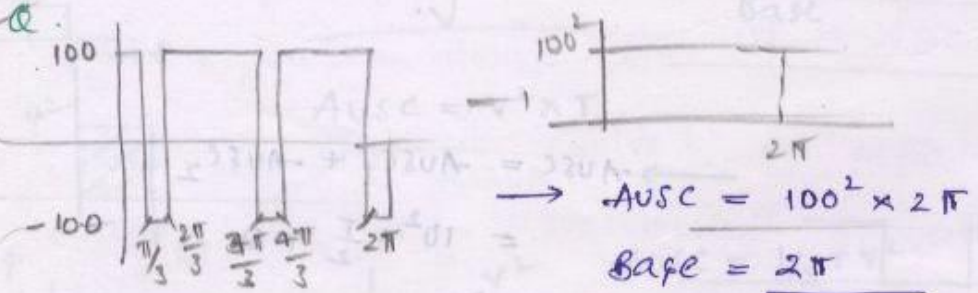 Q.
100
-100
π/3 2π/3 4π/3 2π
100²
2π
→ AUSC = 100² × 2π
Base = 2π